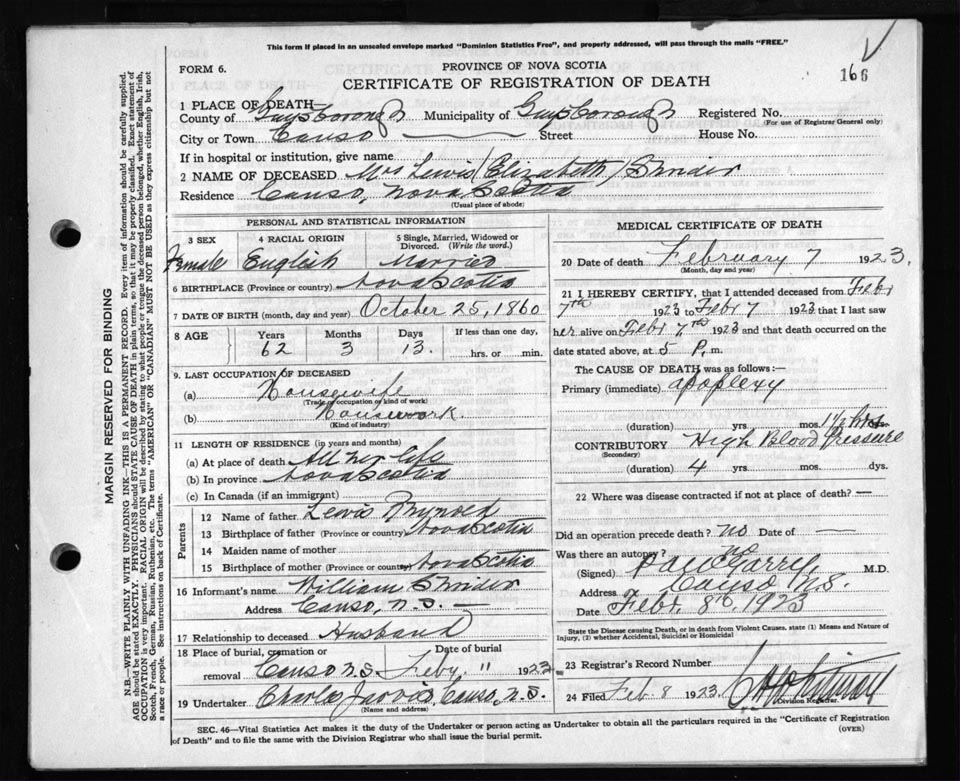 This form if placed in an unsealed envelope marked "Dominion Statistics Free", and properly addressed, will pass through the mails "FREE."
FORM 6.
PROVINCE OF NOVA SCOTIA
CERTIFICATE OF REGISTRATION OF DEATH
166
1 PLACE OF DEATH—
County of Guysborough Municipality of Guysborough Registered No.
(For use of Registrar General only)
City or Town Canso Street House No.
If in hospital or institution, give name
2 NAME OF DECEASED Mrs Lewis (Elizabeth)
Residence Canso, Nova Scotia
(Usual place of abode)
PERSONAL AND STATISTICAL INFORMATION
3 SEX 4 RACIAL ORIGIN 5 Single, Married, Widowed or Divorced. (Write the word.)
Female English Married
6 BIRTHPLACE (Province or country) Nova Scotia
7 DATE OF BIRTH (month, day and year) October 25, 1860
8 AGE Years Months Days If less than one day,
62 3 13. hrs. or min.
9. LAST OCCUPATION OF DECEASED
(a) Housewife
(Trade, occupation or kind of work)
(b) Housework.
(Kind of industry)
11 LENGTH OF RESIDENCE (in years and months)
(a) At place of death All her life
(b) In province Nova Scotia
(c) In Canada (if an immigrant)
Parents
12 Name of father Lewis
13 Birthplace of father (Province or country) Nova Scotia
14 Maiden name of mother
15 Birthplace of mother (Province or country) Nova Scotia
16 Informant's name William
Address Canso, N.S. —
17 Relationship to deceased Husband
18 Place of burial, cremation or removal Date of burial
Canso N.S. Feby. 11 1923
19 Undertaker Charles Jarvis, Canso, N.S.
(Name and address)
MEDICAL CERTIFICATE OF DEATH
20 Date of death February 7 1923.
(Month, day and year)
21 I HEREBY CERTIFY, that I attended deceased from Febr
7th 1923 to Febr 7 1923 that I last saw
her alive on Febr 7th 1923 and that death occurred on the
date stated above, at 5 P. m.
The CAUSE OF DEATH was as follows:—
Primary (immediate) apoplexy
(duration) yrs. mos. 1 1/2 hrs.
CONTRIBUTORY High Blood Pressure
(Secondary)
(duration) 4 yrs. mos. dys.
22 Where was disease contracted if not at place of death? —
Did an operation precede death? no Date of —
Was there an autopsy? no
(Signed) M.D.
Address Canso N.S.
Date Febr. 8th 1923
State the Disease causing Death, or in death from Violent Causes, state (1) Means and Nature of Injury, (2) whether Accidental, Suicidal or Homicidal
23 Registrar's Record Number
24 Filed Feb 8 1923.
Division Registrar.
SEC. 46—Vital Statistics Act makes it the duty of the Undertaker or person acting as Undertaker to obtain all the particulars required in the "Certificate of Registration
of Death" and to file the same with the Division Registrar who shall issue the burial permit.
(OVER)
MARGIN RESERVED FOR BINDING
N.B.—WRITE PLAINLY WITH UNFADING INK—THIS IS A PERMANENT RECORD. Every item of information should be carefully supplied.
AGE should be stated EXACTLY. PHYSICIANS should STATE CAUSE OF DEATH in plain terms, so that it may be properly classified. Exact statement of
OCCUPATION is very important. RACIAL ORIGIN will be described by stating to what people or tongue the deceased person belonged, whether English, Irish,
Scotch, French, German, Russian, Ruthenian, etc. The terms "AMERICAN" or "CANADIAN" MUST NOT BE USED as they express citizenship but not
a race or people. See instructions on back of Certificate.